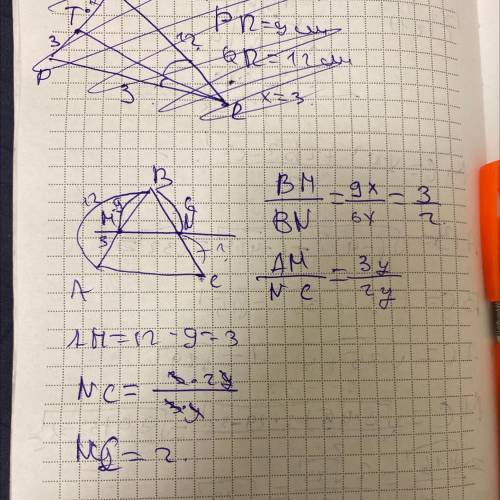 T
3
P
12
3
R
PR=9 см
QR=12 см
x=3
B
12
9
M
N
3
?
A
C
BM/BN = 9x/6x = 3/2
AM/NC = 3y/2y
AM=12-9=3
NC= 3·2y/3y
NC=2.